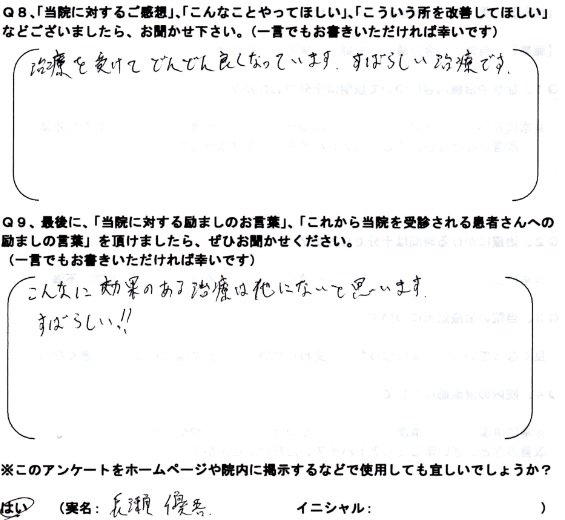 Q8、「当院に対するご感想」、「こんなことやってほしい」、「こういう所を改善してほしい」
などございましたら、お聞かせ下さい。(一言でもお書きいただければ幸いです)
治療を受けてどんどん良くなっています. すばらしい治療です.
Q9、最後に、「当院に対する励ましのお言葉」、「これから当院を受診される患者さんへの
励ましの言葉」を頂けましたら、ぜひお聞かせください。
(一言でもお書きいただければ幸いです)
こんなに効果のある治療は他にないと思います.
すばらしい!!
※このアンケートをホームページや院内に掲示するなどで使用しても宜しいでしょうか?
はい (実名: 長瀬 優 イニシャル: )